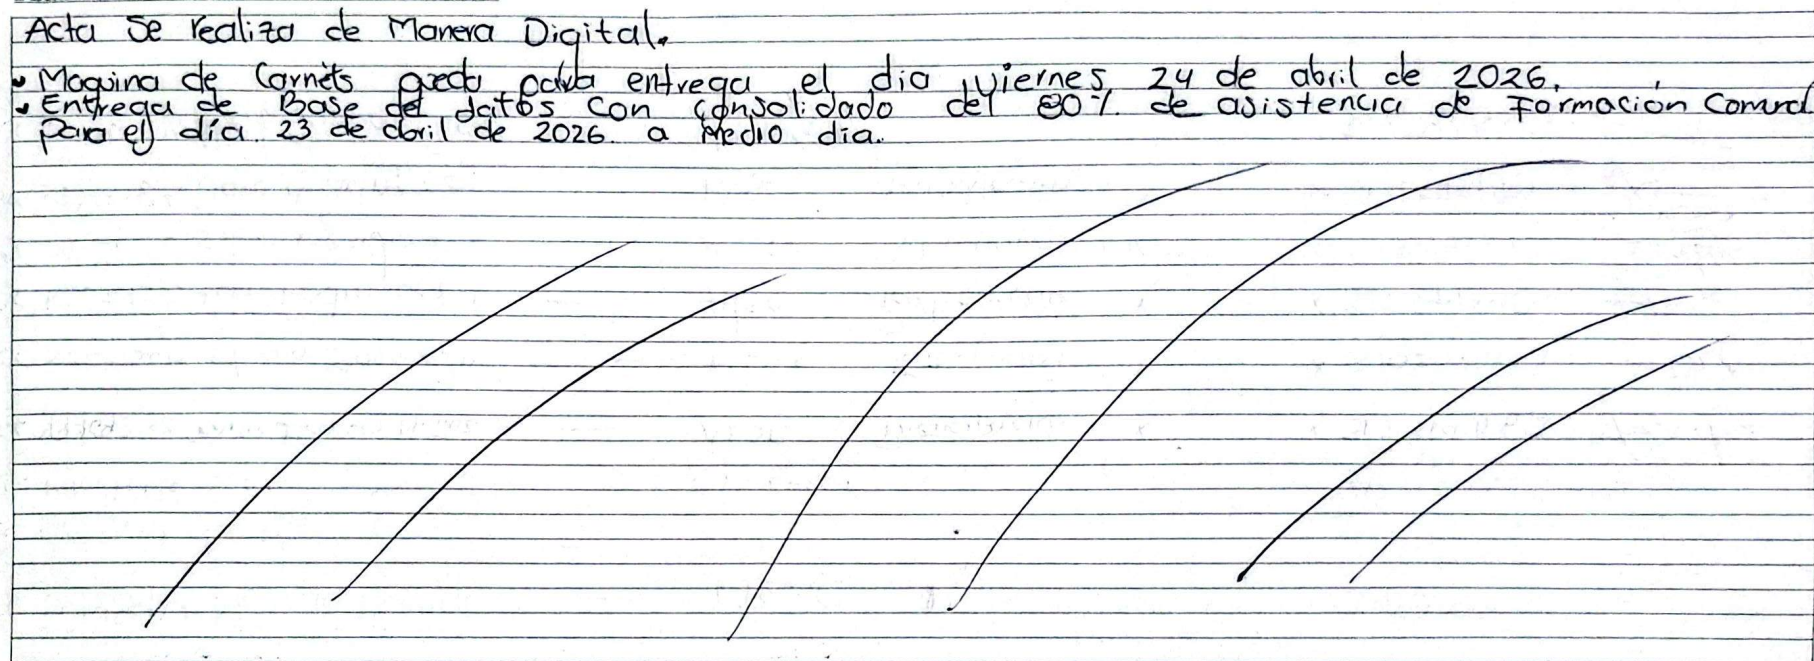 Acta se realiza de Manera Digital.
Maquina de Carnéts queda para entrega el dia viernes 24 de abril de 2026.
Entrega de Base de datos con consolidado del 80% de asistencia de Formación
para el día 23 de abril de 2026 a Medio dia.